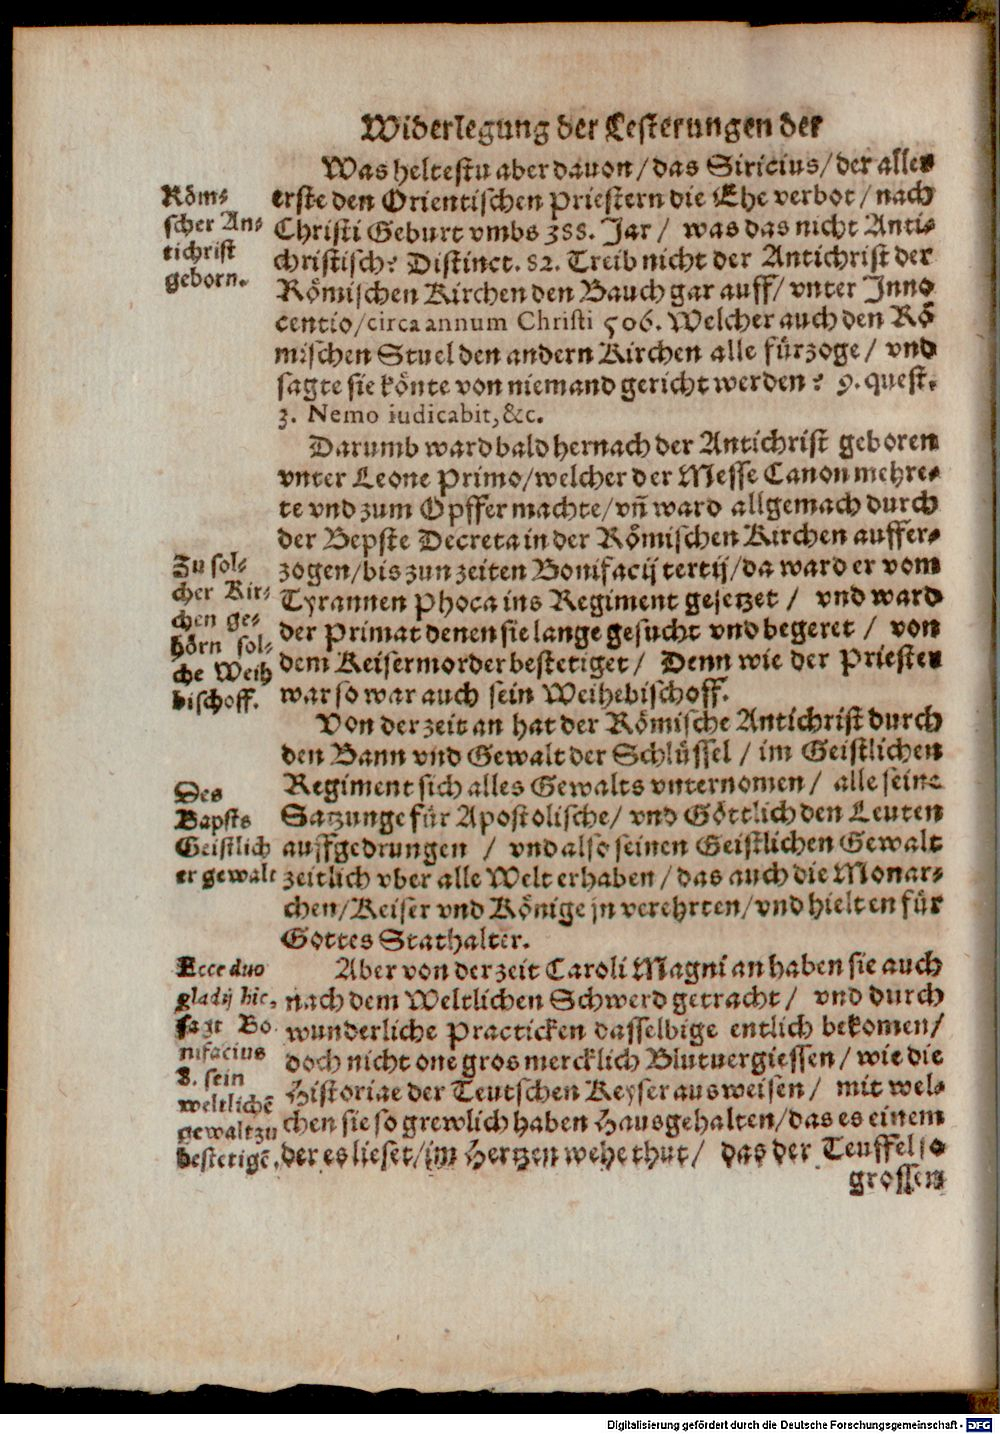 Widerlegung der Lesterungen der
Was heltestu aber dauon / das Siricius / der aller
erste den Orientischen Priestern die Ehe verbot / nach
Christi Geburt vmbs 388. Jar / was das nicht Anti-
christisch? Distinct. 82. Treib nicht der Antichrist der
Römischen Kirchen den Bauch gar auff / vnter Inno
centio / circa annum Christi 506. Welcher auch den Rö
mischen Stuel den andern Kirchen alle fürzoge / vnd
sagte sie könte von niemand gericht werden? 9. quest.
3. Nemo iudicabit, &c.
Röm-
scher An-
tichrist
geborn.
Darumb ward bald hernach der Antichrist geboren
vnter Leone Primo / welcher der Messe Canon mehre-
te vnd zum Opffer machte / vñ ward allgemach durch
der Bepste Decreta in der Römischen Kirchen auffer-
zogen / bis zun zeiten Bonifacij tertij / da ward er vom
Tyrannen Phoca ins Regiment gesetzet / vnd ward
der Primat denen sie lange gesucht vnd begeret / von
dem Keisermorder bestetiget / Denn wie der Priester
war so war auch sein Weihebischoff.
Zu sol-
cher Kir-
chen ge-
hörn sol-
che Weih
bischoff.
Von der zeit an hat der Römische Antichrist durch
den Bann vnd Gewalt der Schlüssel / im Geistlichen
Regiment sich alles Gewalts vnternomen / alle seine
Satzunge für Apostolische / vnd Göttlich den Leuten
auffgedrungen / vnd also seinen Geistlichen Gewalt
zeitlich vber alle Welt erhaben / das auch die Monar-
chen / Keiser vnd Könige jn verehrten / vnd hielten für
Gottes Stathalter.
Des
Bapsts
Geistlich
er gewalt
Aber von der zeit Caroli Magni an haben sie auch
nach dem Weltlichen Schwerd getracht / vnd durch
wunderliche Practicken dasselbige entlich bekomen /
doch nicht one gros mercklich Blutuergiessen / wie die
Historiae der Teutschen Keyser ausweisen / mit wel-
chen sie so grewlich haben Hausgehalten / das es einem
der es lieset / im Hertzen wehe thut / das der Teuffel so
grossen
Ecce duo
gladij hic,
sagt Bo
nifacius
8. sein
weltlichẽ
gewalt zu
bestetigẽ.
Digitalisierung gefördert durch die Deutsche Forschungsgemeinschaft - DFG